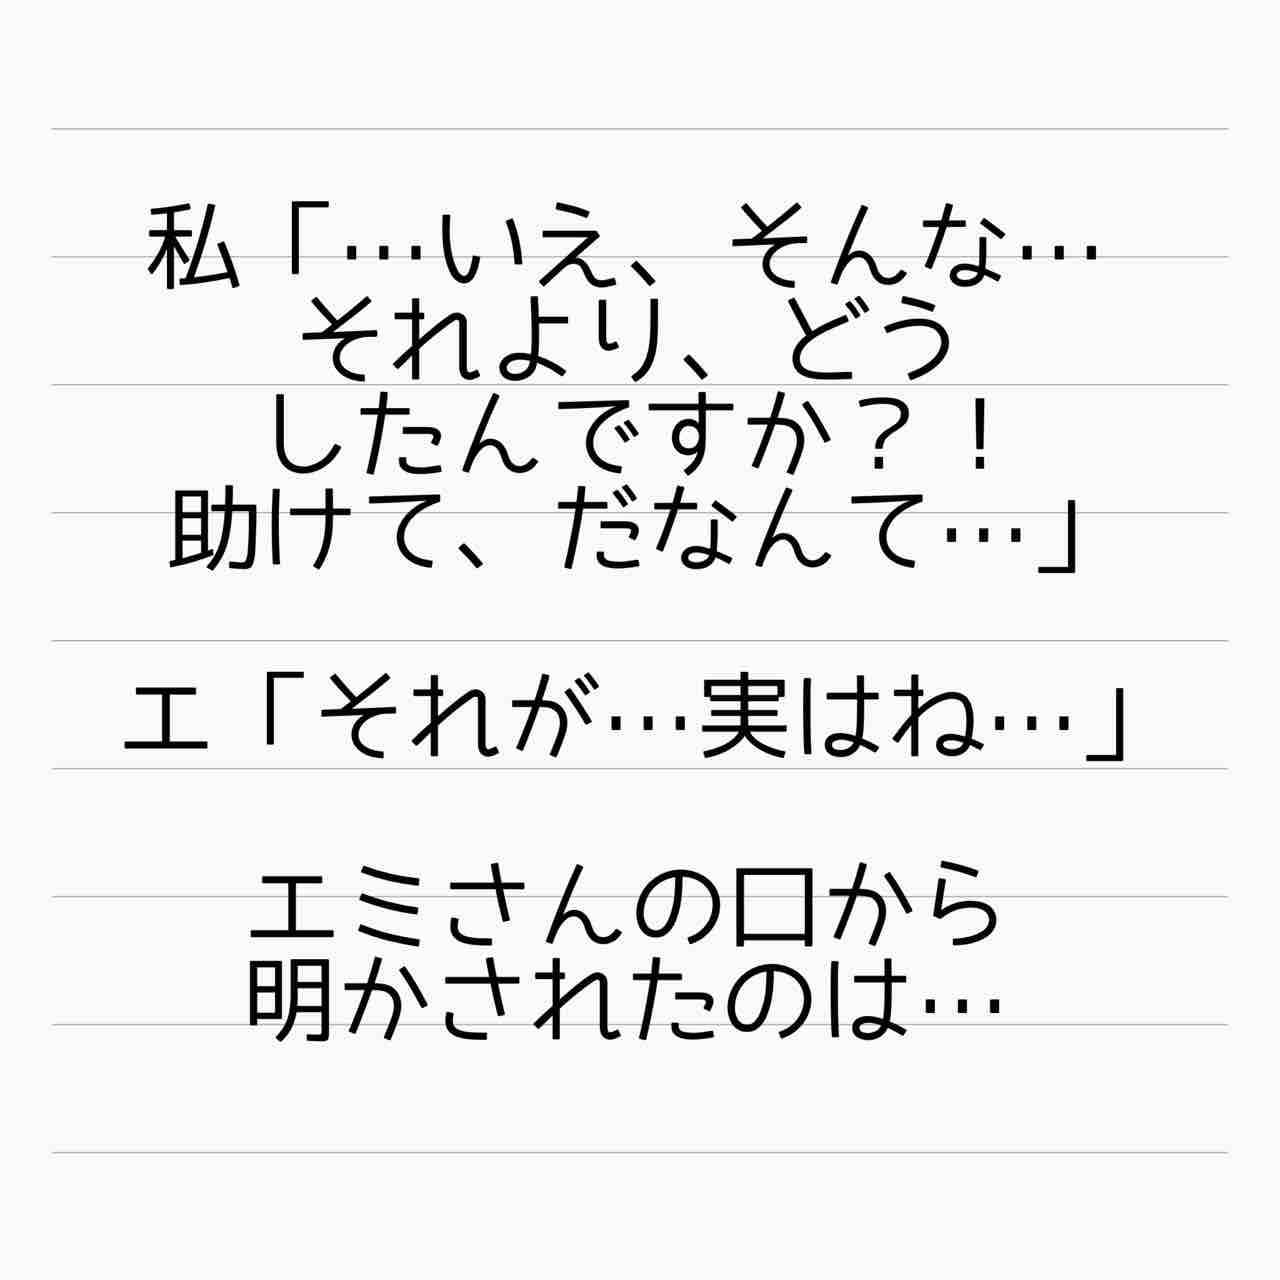 私「…いえ、そんな…
それより、どう
したんですか？！
助けて、だなんて…」
エ「それが…実はね…」
エミさんの口から
明かされたのは…